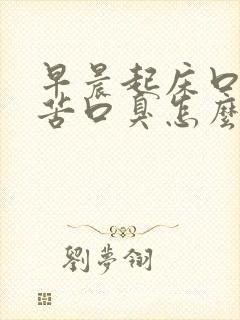 早晨起床口
苦口臭怎麼
劉夢翎